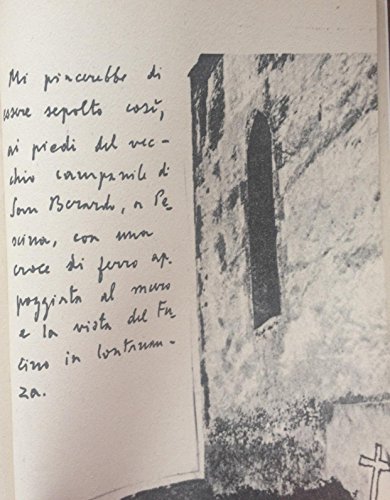 Mi piacerebbe di
essere sepolto così,
ai piedi del vec-
chio campanile di
San Berardo, a Pe-
scina, con una
croce di ferro ap-
poggiata al muro
e la vista del Fu-
cino in lontanan-
za.